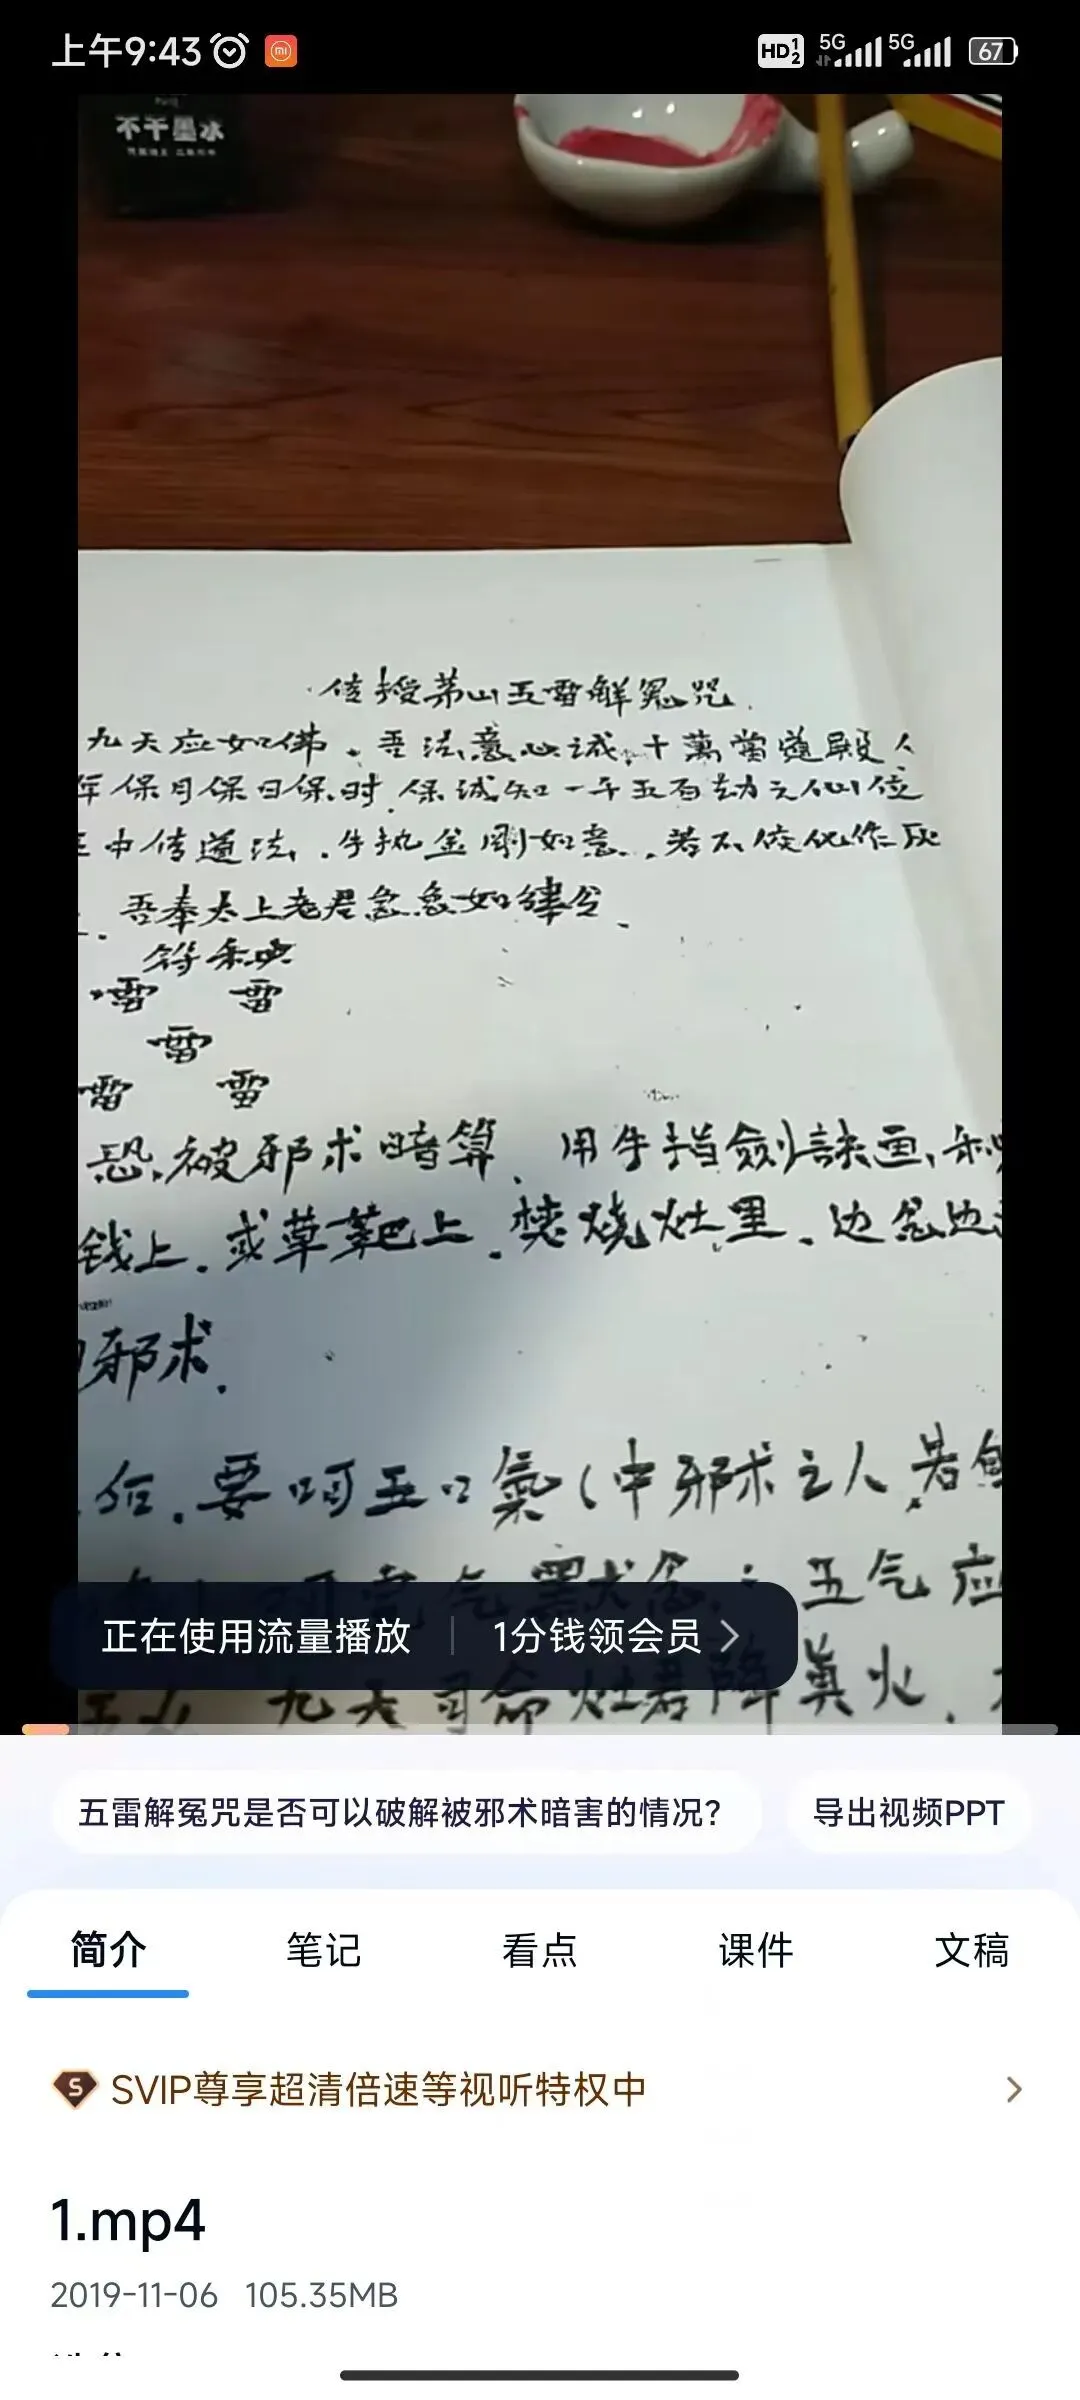 上午9:43
HD 1 2 5G 5G 67
不干墨水
传授茅山五雷解冤咒.
九天应如佛.吾法意心诚.十萬當道殿人
年保月保日保时.保诚知一千五百劫之仙位
中传道法.手执金刚如意.若不依化作灰
.吾奉太上老君急急如律令.
符秘
雷 雷
雷
雷 雷
恐被邪术暗算.用手指剑訣画,
钱上.或草靶上.焚烧灶里.边念边
邪术.
后.要呵五口氣(中邪术之人.若
气默念:五气应
九天司命灶君降真火.
正在使用流量播放 | 1分钱领会员 >
五雷解冤咒是否可以破解被邪术暗害的情况?
导出视频PPT
简介 笔记 看点 课件 文稿
S SVIP尊享超清倍速等视听特权中 >
1.mp4
2019-11-06 105.35MB